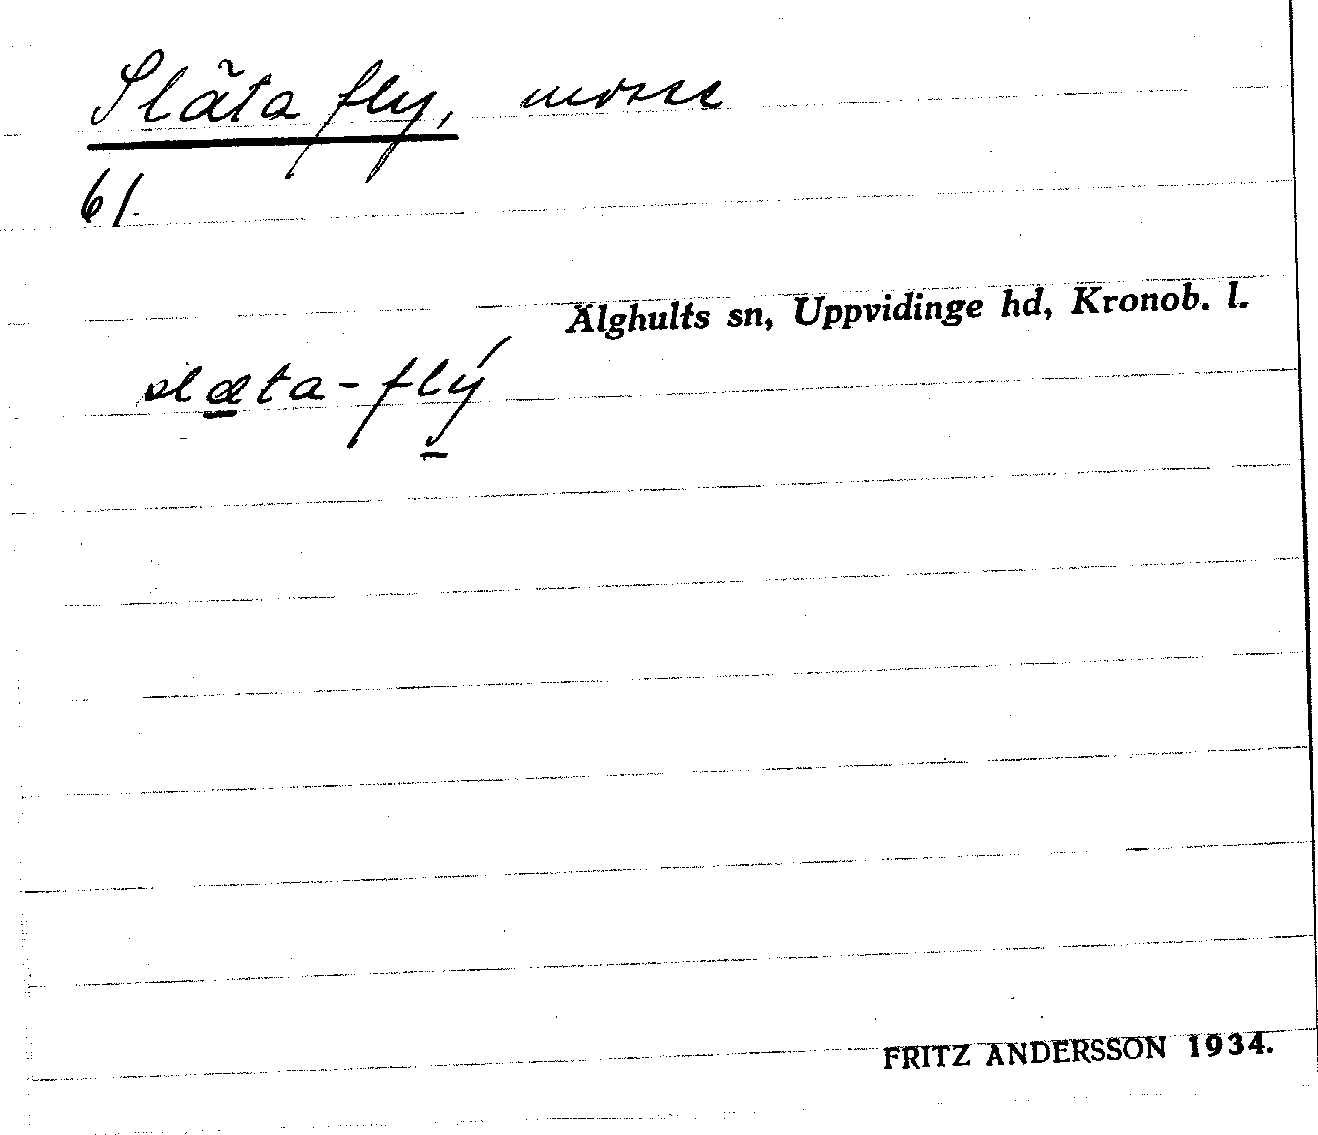 Släta fly, mosse
61.
Älghults sn, Uppvidinge hd, Kronob. l.
slæta-flý
FRITZ ANDERSSON 1934.